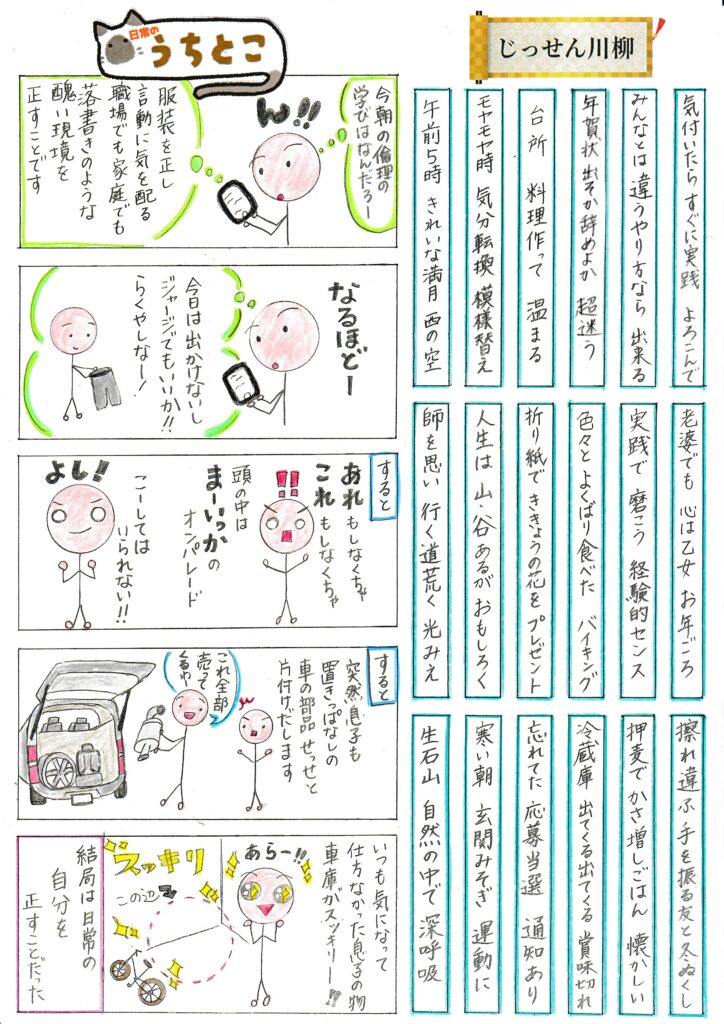 日常の
うちとこ
今朝の倫理の
学びはなんだろー
ん!!
服装を正し
言動に気を配る
職場でも家庭でも
落書きのような
醜い現境を
正すことです
なるほどー
今日は出かけないし
ジャージでもいいか!!
らくやしなー!
すると
あれもしなくちゃ
これもしなくちゃ
頭の中は
まーいっかの
オンパレード
こーしては
いられない!!
よし!
すると
突然息子も
置きっぱなしの
車の部品せっせと
片付けだします
これ全部
売って
くるわー
いつも気になって
仕方なかった息子の物
車庫がスッキリー!!
あらー!!
スッキリ
この辺
結局は日常の
自分を
正すことだった
じっせん川柳
気付いたら すぐに実践 よろこんで
みんなとは 違うやり方なら 出来る
年賀状 出そか辞めよか 超迷う
台所 料理作って 温まる
モヤモヤ時 気分転換 模様替え
午前5時 きれいな満月 西の空
老婆でも 心は乙女 お年ごろ
実践で 磨こう 経験的センス
色々と よくばり食べた バイキング
折り紙で ききょうの花を プレゼント
人生は 山・谷あるが おもしろく
師を思い 行く道荒く 光みえ
擦れ違ふ 手を振る友と 冬ぬくし
押麦で かさ増しごはん 懐かしい
冷蔵庫 出てくる出てくる 賞味切れ
忘れてた 応募当選 通知あり
寒い朝 玄関みそぎ 運動に
生石山 自然の中で 深呼吸